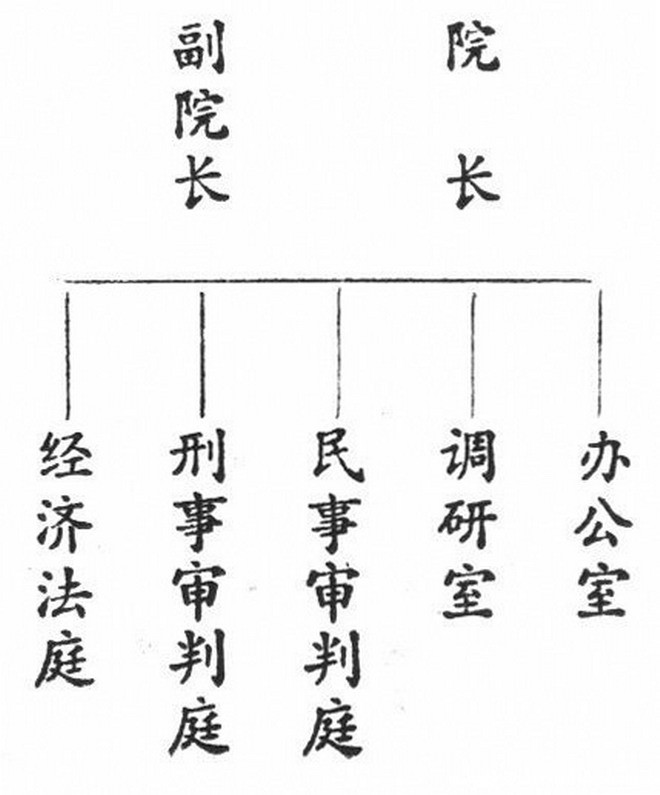 院长
副院长
办公室
调研室
民事审判庭
刑事审判庭
经济法庭